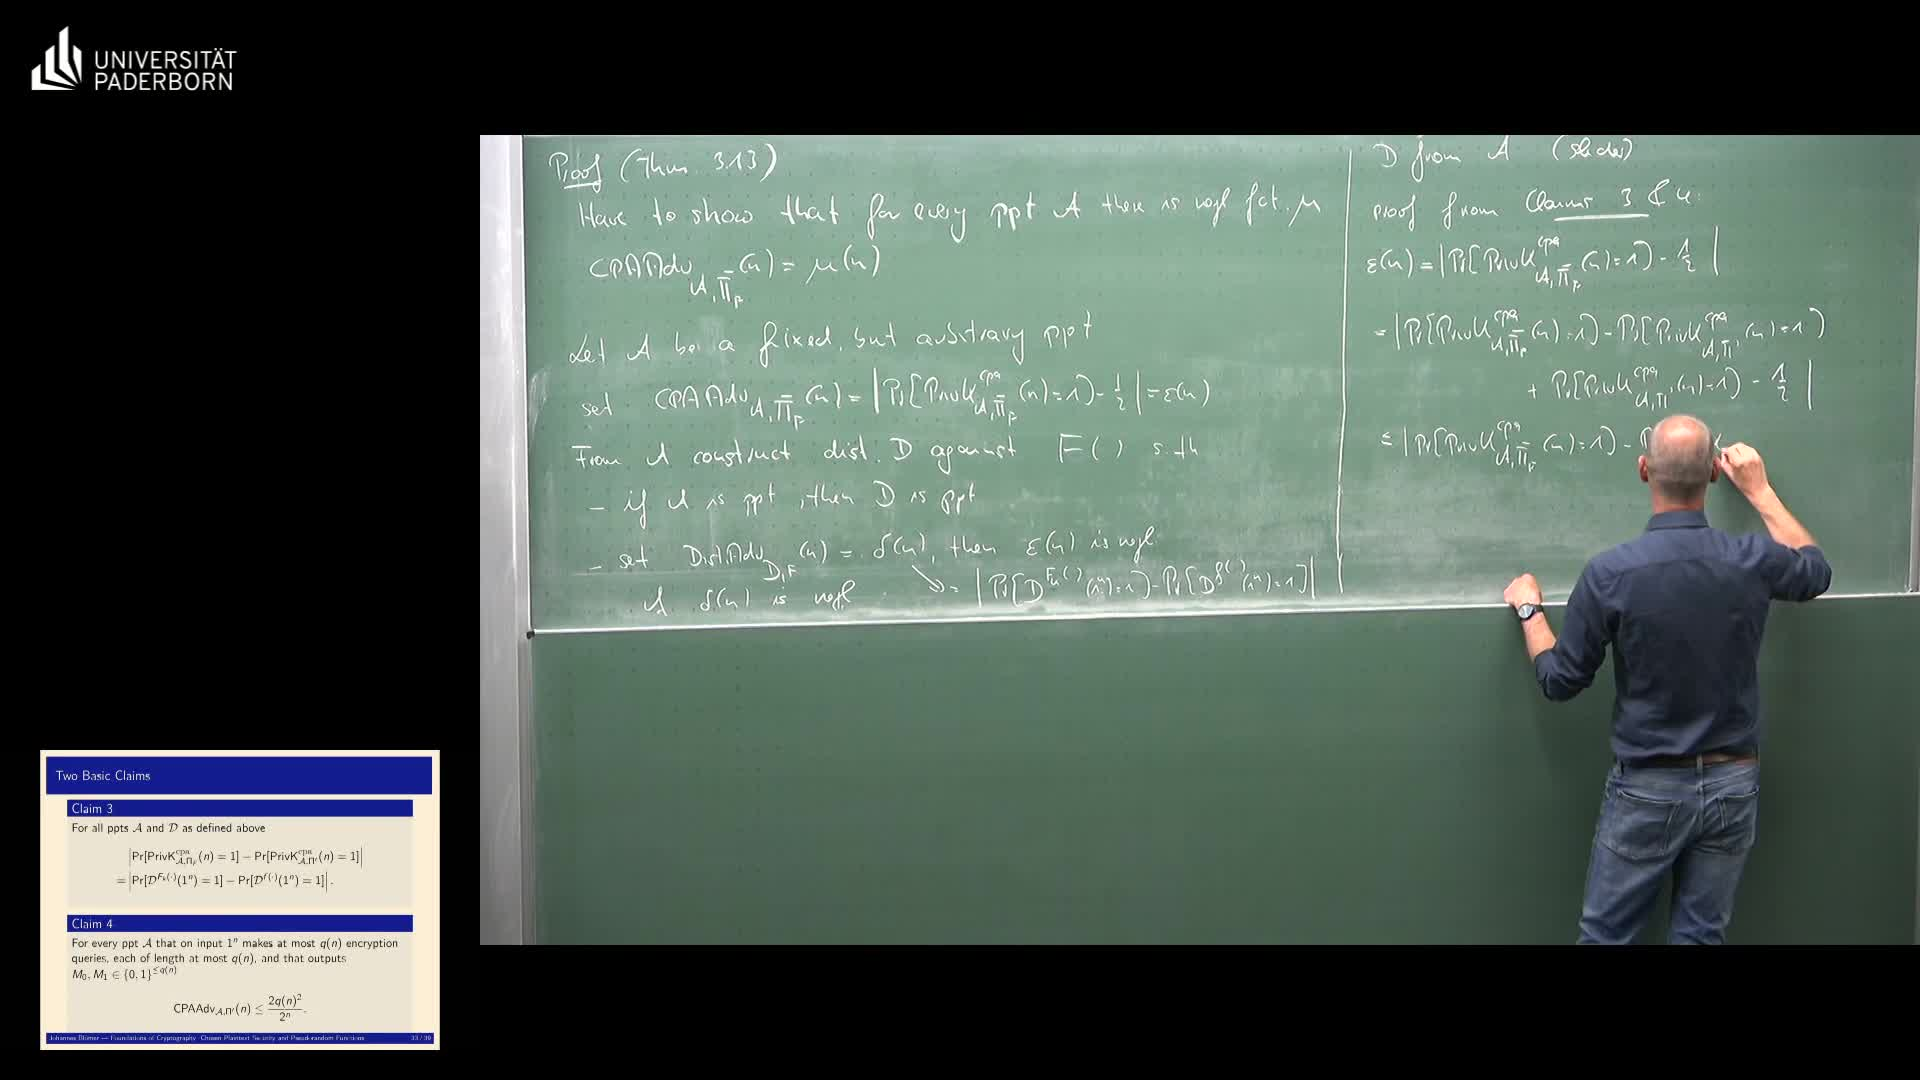 UNIVERSITÄT
PADERBORN
Proof (Thm 3.13)
Have to show that for every ppt A there is negl fct. μ
CPAAdv_{A,Π_F}(n) = μ(n)
Let A be a fixed, but arbitrary ppt
set CPAAdv_{A,Π_F}(n) = |Pr[PrivK^{cpa}_{A,Π_F}(n)=1] - 1/2| = ε(n)
From A construct dist. D against F( ) s.th
- if A is ppt, then D is ppt
- set DistAdv_{D,F}(n) = δ(n), then ε(n) is negl.
if δ(n) is negl. = |Pr[D^{F_k( )}(1^n)=1] - Pr[D^{f( )}(1^n)=1]|
D from A (slides)
proof from Claims 3 & 4:
ε(n) = |Pr[PrivK^{cpa}_{A,Π_F}(n)=1] - 1/2|
= |Pr[PrivK^{cpa}_{A,Π_F}(n)=1] - Pr[PrivK^{cpa}_{A,Π'}(n)=1]
+ Pr[PrivK^{cpa}_{A,Π'}(n)=1] - 1/2|
≤ |Pr[PrivK^{cpa}_{A,Π_F}(n)=1] -
Two Basic Claims
Claim 3
For all ppts A and D as defined above
|Pr[PrivK^{cpa}_{A,Π_F}(n) = 1] − Pr[PrivK^{cpa}_{A,Π'}(n) = 1]|
= |Pr[D^{F_k(·)}(1^n) = 1] − Pr[D^{f(·)}(1^n) = 1]|.
Claim 4
For every ppt A that on input 1^n makes at most q(n) encryption
queries, each of length at most q(n), and that outputs
M_0, M_1 ∈ {0, 1}^{≤q(n)}
CPAAdv_{A,Π'}(n) ≤ 2q(n)^2 / 2^n.
Johannes Blömer — Foundations of Cryptography Chosen Plaintext Security and Pseudorandom Functions 33 / 39